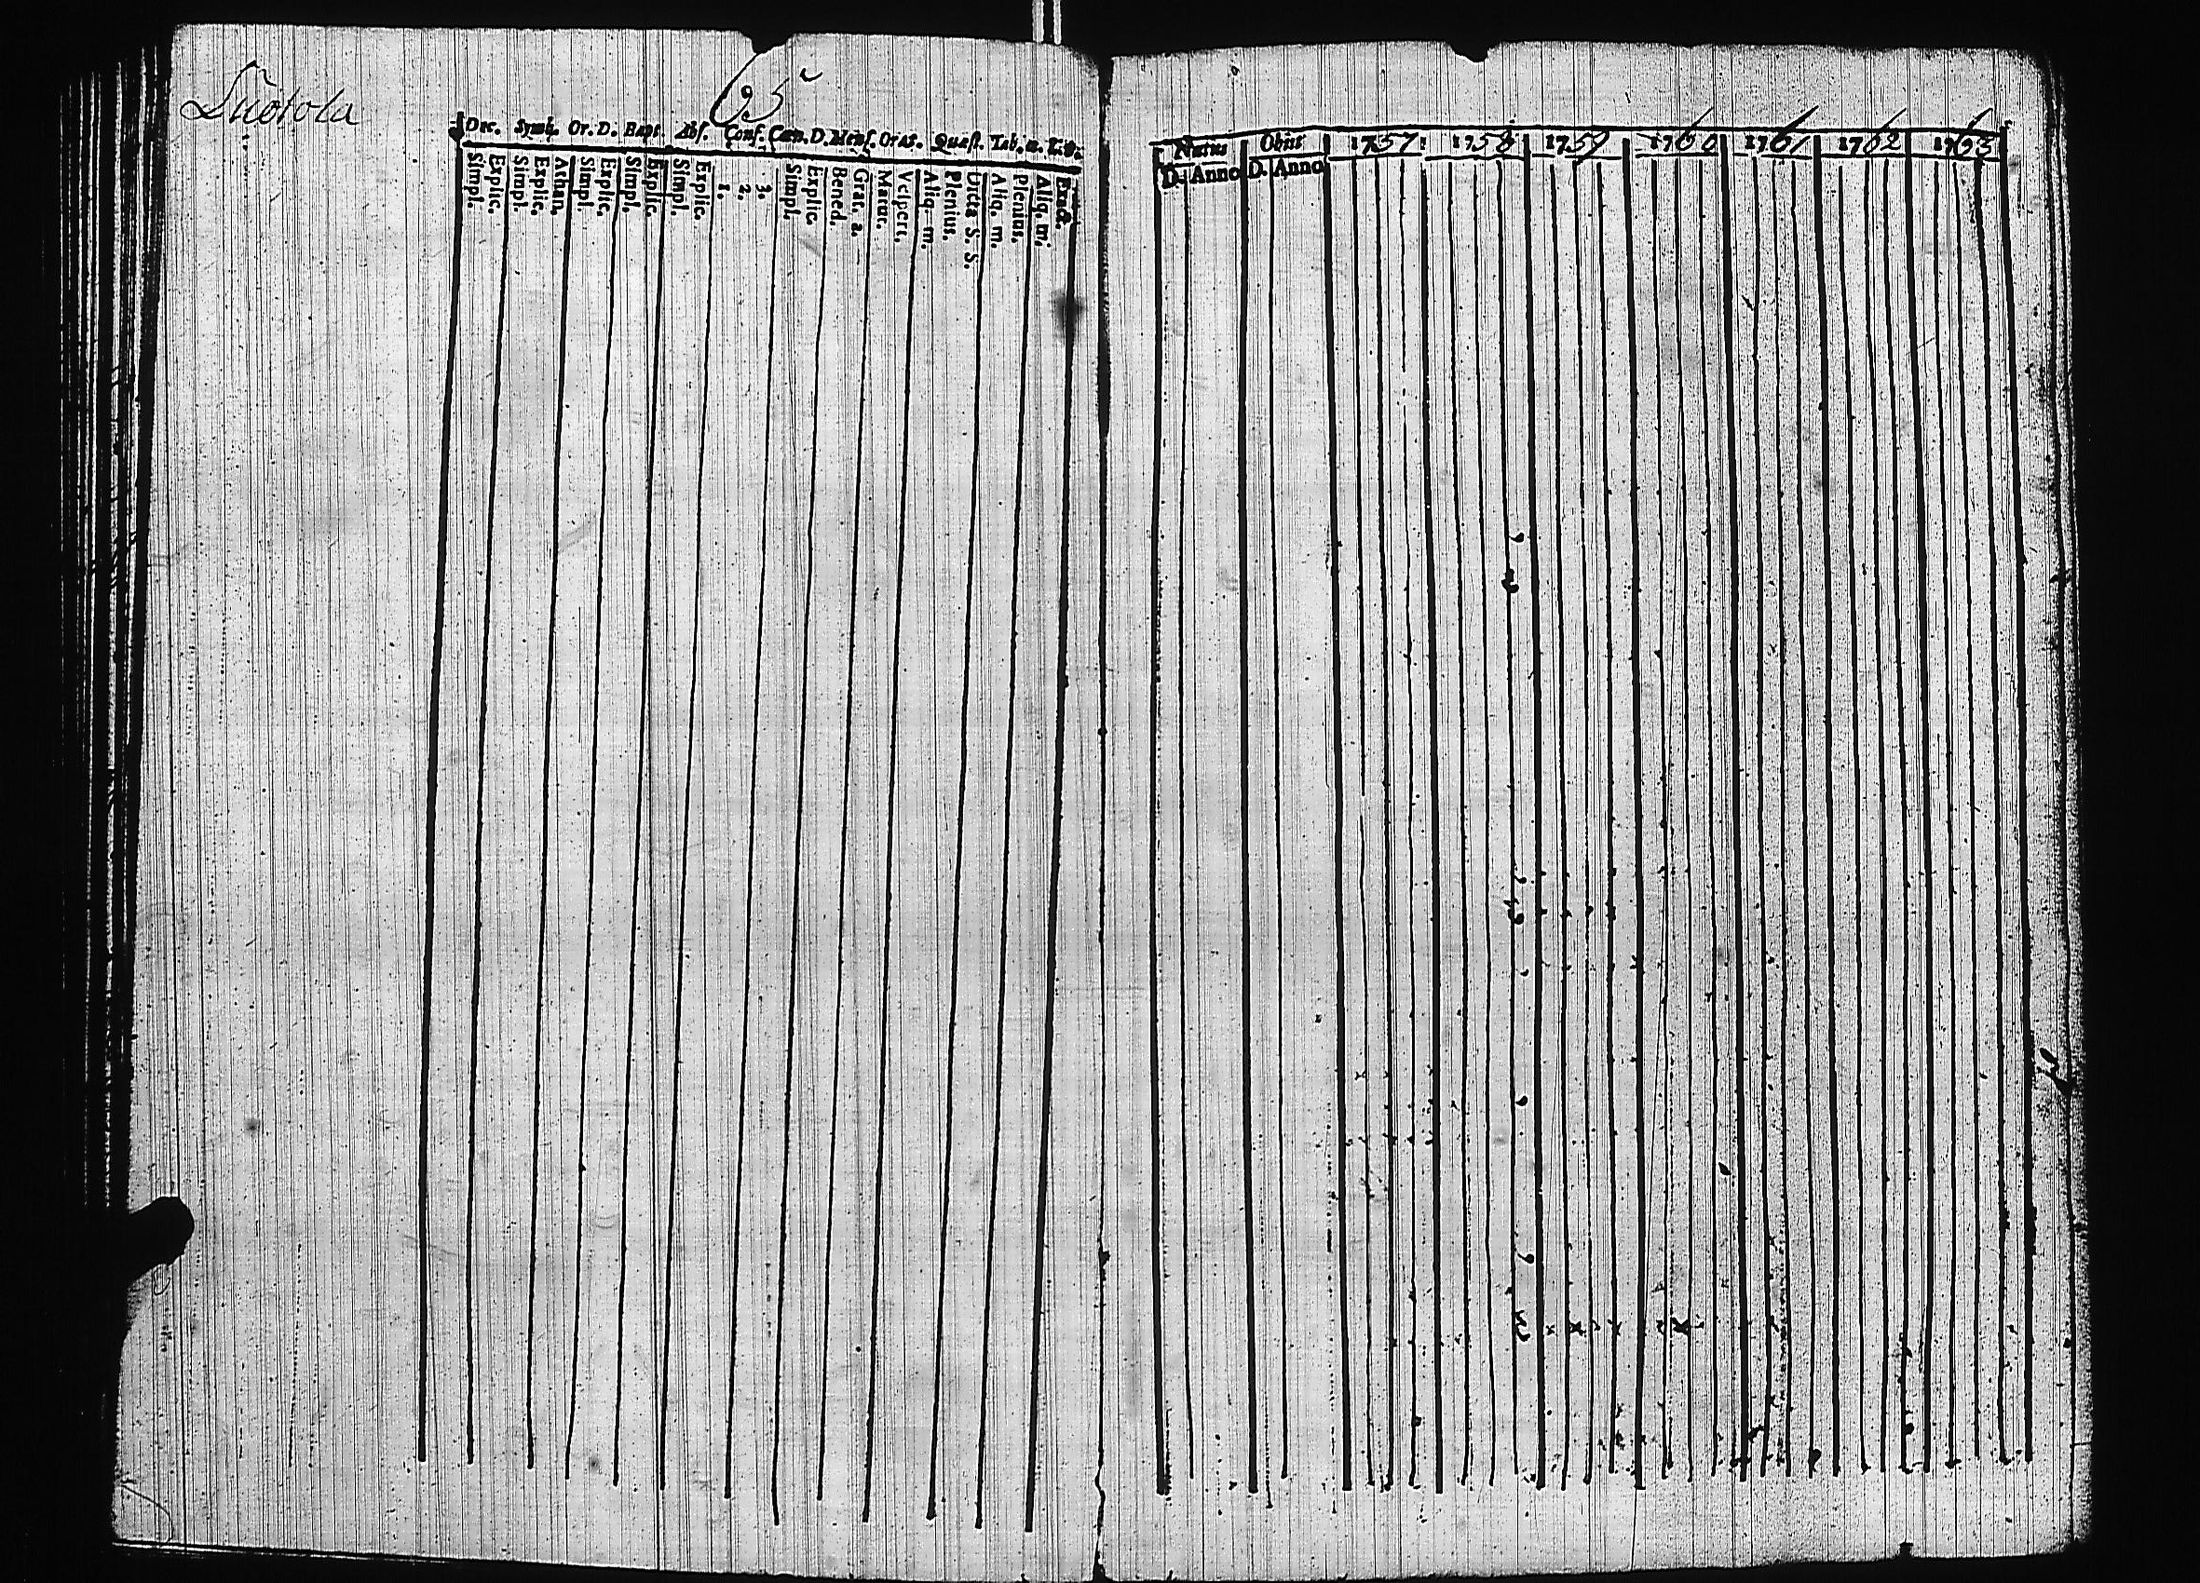 Luotola
65
Dec. Symb. Or. D. Bapt. Abs. Conf. Cœn. D. Mens. Orat. Quæst. Tab. œ.
Simpl.
Explic.
Simpl.
Explic.
Athan.
Simpl.
Explic.
Simpl.
Explic.
Simpl.
Explic.
1.
2.
3.
Simpl.
Explic.
Bened.
Grat. a.
Matut.
Vespert.
Aliq. m.
Plenius.
Dicta S. S.
Aliq. m.
Plenius.
Aliq. m.
Exact.
Natus Obiit 1757 1758 1759 1760 1761 1762 1763
D. Anno D. Anno